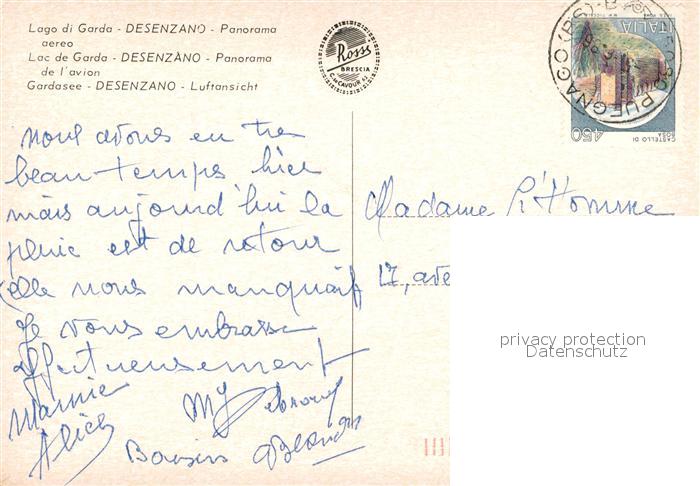 Lago di Garda - DESENZANO - Panorama
aereo
Lac de Garda - DESENZÀNO - Panorama
de l'avion
Gardasee - DESENZANO - Luftansicht
Rossi
BRESCIA
C.so CAVOUR
ITALIA
450
CASTELLO DI
ROSA
PUEGNAGO (BS)
nous avons eu très
beau temps hier
mais aujourd'hui la
pluie est de retour
(elle nous manquait)
Je vous embrasse
affectueusement
Mamie
Alice
Baisers
Madame L'Homme
17, ave
privacy protection
Datenschutz